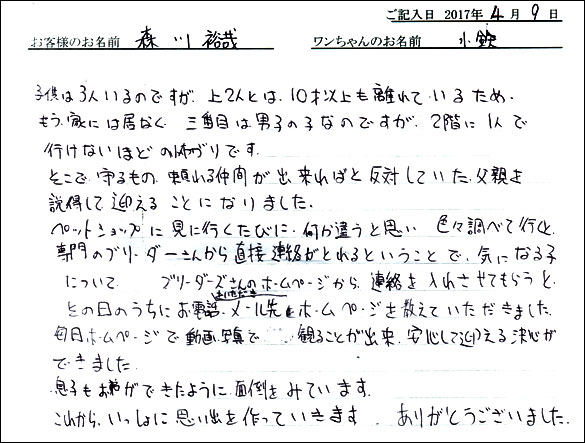 ご記入日 2017年4月9日
お客様のお名前 森川裕哉 ワンちゃんのお名前 小鉄
子供は3人いるのですが、上2人とは、10才以上も離れているため、
もう家には居なく 三番目は男子の子なのですが、2階に1人で
行けないほどの怖がりです。
そこで、守るもの、頼れる仲間が出来ればと反対していた父親を
説得して迎えることになりました。
ペットショップに見に行くたびに、何か違うと思い 色々調べて行くと、
専門のブリーダーさんから直接連絡がとれるということで、気になる子
について ブリーダーズさんのホームページから、連絡を入れさせてもらうと、
その日のうちにお電話いただきメール先とホームページを教えていただきました。
毎日ホームページで動画、写真で 観ることが出来、安心して迎える決心が
できました。
息子も弟ができたように面倒をみています。
これから、いっしょに思い出を作っていきます。 ありがとうございました。